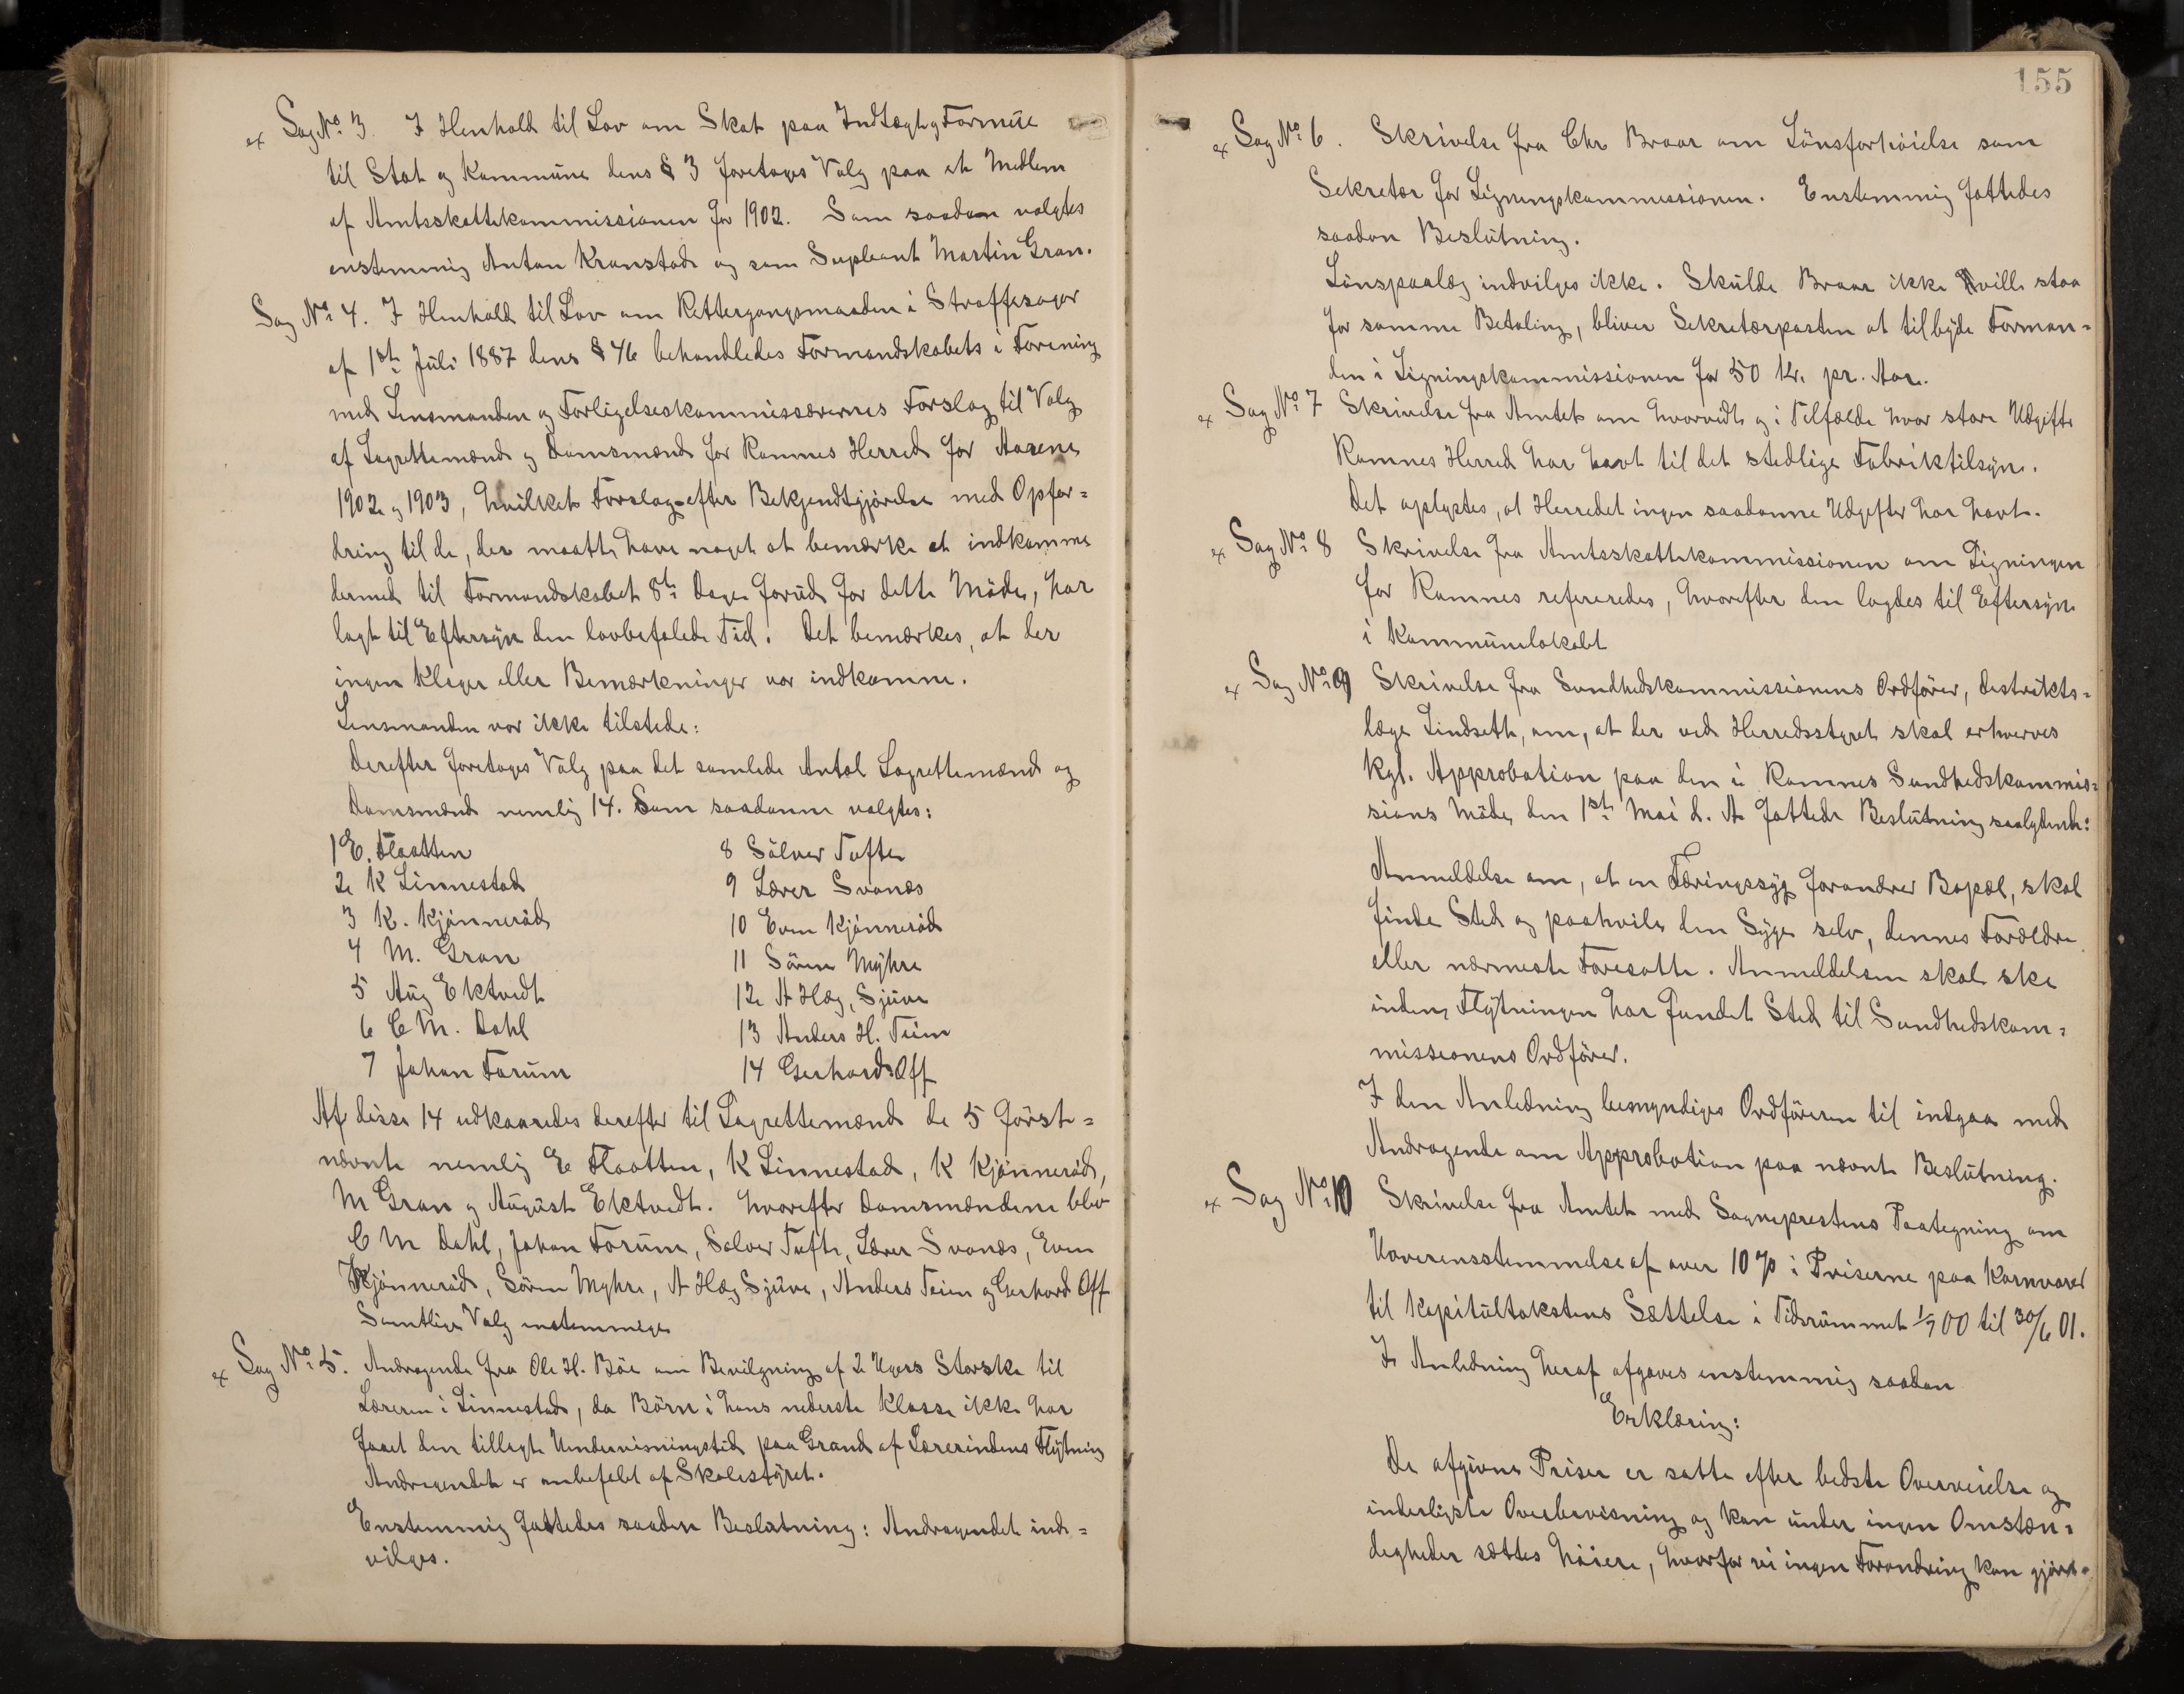 ex Sag No. 3. I Henhold til Lov om Skat paa Indtægt og Formue
til Stat og Kommune dens § 3 foretoges Valg paa et Medlem
af Amtsskattekommissionen for 1902. Som saadan valgtes
enstemmig Anton Kranstad og som Supleant Martin Gran.
Sag No. 4. I Henhold til Lov om Rettergangsmaaden i Straffesager
af 1ste Juli 1887 dens § 46 behandledes Formandskabets i Forening
med Lensmanden og Forligelseskommissærernes Forslag til Valg
af Lagrettemænd og Domsmænd for Ramnes Herred for Aarene
1902 og 1903, hvilket Forslag efter Bekjendtgjørelse med Opfor=
dring til de, der maatte have noget at bemærke at indkomme
dermed til Formandskabet 8te Dage forud for dette Möde, har
lagt til Eftersyn den lovbefalede Tid. Det bemærkes, at der
ingen Klager eller Bemærkninger var indkomne.
Lensmanden var ikke tilstede:
Derefter foretoges Valg paa det samlede Antal Lagrettemænd og
Domsmænd nemlig 14. Som saadanne valgtes:
1 E. Flaatten
2 K Linnestad
3 K. Kjönneröd
4 M. Gran
5 Aug Ektvedt
6 C M. Dahl
7 Johan Forum
8 Sölver Tufte
9 Lærer Svanæs
10 Even Kjönneröd
11 Sören Myhre
12 A Hæg, Sjuve
13 Anders H. Teien
14 Gerhard Off
Af disse 14 udkaaredes derefter til Lagrettemænd de 5 först=
nævnte nemlig E Flaatten, K Linnestad, K Kjönneröd,
M Gran og August Ektvedt. Hvorefter Domsmændene blev
C M Dahl, Johan Forum, Solver Tufte, Lærer Svanæs, Even
Kjönneröd, Sören Myhre, A Hæg Sjuve, Anders Teien og Gerhard Off
Samtlige Valg enstemmige
ex Sag No. 5. Andragende fra Ole H. Böe om Bevilgning af 2 Ugers Storskole til
Læreren i Linnestad, da Börn i hans nederste Klasse ikke har
faaet den tillagte Undervisningstid paa Grund af Lærerindens Flytning
Andragendet er anbefalet af Skolestyret.
Enstemmig fattedes saadan Beslutning: Andragendet ind=
vilges.
155
ex Sag No. 6. Skrivelse fra Chr Braar om Lönsforhöielse som
Sekretær for Ligningskommissionen. Enstemmig fattedes
saadan Beslutning.
Lönspaalæg indvilges ikke. Skulde Braar ikke ville staa
for samme Betaling, bliver Sekretærposten at tilbyde Forman=
den i Ligningskommissionen for 50 Kr. pr. Aar.
ex Sag No. 7 Skrivelse fra Amtet om hvorvidt og i Tilfælde hvor store Udgifter
Ramnes Herred har havt til det stedlige Fabriktilsyn.
Det oplystes, at Herredet ingen saadanne Udgifter har havt.
ex Sag No. 8 Skrivelse fra Amtsskattekommissionen om Ligningen
for Ramnes refereredes, hvorefter den lagdes til Eftersyn
i Kommunelokalet
ex Sag No. 9 Skrivelse fra Sundhedskommissionens Ordförer, Destrikts=
læge Lindseth, om, at der ved Herredsstyret skal erhverves
Kgl. Approbation paa den i Ramnes Sundhedskommis=
sions Möde den 1ste Mai d. A fattede Beslutning saalydende:
Anmeldelse om, at en Tæringssyg forandrer Bopæl, skal
finde Sted og paahvile den Syge selv, dennes Forældre
eller nærmeste Foresatte. Anmeldelsen skal ske
inden Flytningen har fundet Sted til Sundhedskom=
missionens Ordförer.
I den Anledning bemyndiges Ordföreren til indgaa med
Andragende om Approbation paa nævnte Beslutning.
ex Sag No. 10 Skrivelse fra Amtet med Sogneprestens Paategning om
Uoverensstemmelse af over 10 % i Priserne paa Kornvarer
til Kapitultakstens Sættelse i Tidsrummet 1/7 00 til 30/6 01.
I Anledning heraf afgaves enstemmig saadan
Erklæring:
De afgivne Priser er satte efter bedste Overveielse og
inderligste Overbevisning og kan under ingen Omstæn=
degheder sættes höiere, hvorfor vi ingen Forandring kan gjöre.